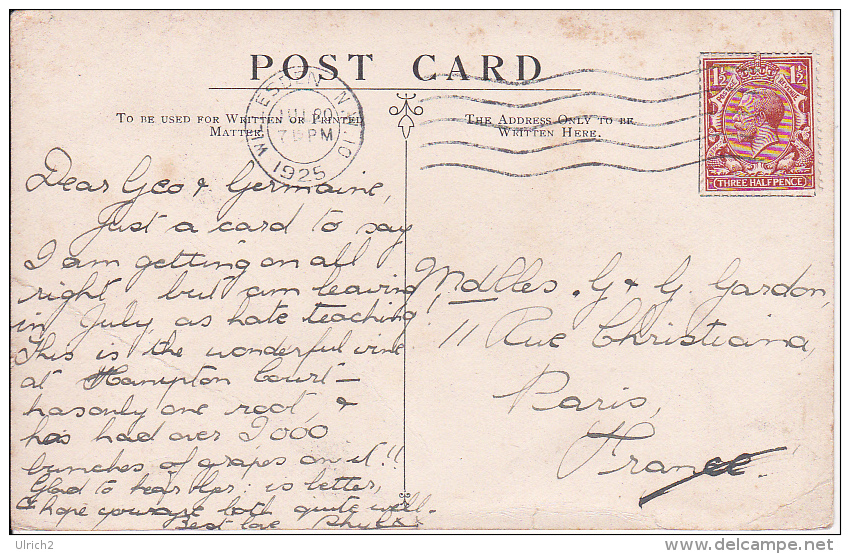 POST CARD
TO BE USED FOR WRITTEN OR PRINTED
MATTER.
THE ADDRESS ONLY TO BE
WRITTEN HERE.
WILLESDEN N.W.10
7 15 PM
1925
1½ 1½
THREE HALFPENCE
Dear Geo & Germaine,
Just a card to say
I am getting on all
right but am leaving
in July, as hate teaching
This is the wonderful vine
at Hampton Court –
has only one root, &
has had over 2000
bunches of grapes on it!!
Glad to hear is better,
& hope you are both quite well.
Best love Phyl xx
Mdlles. G & G. Gardon,
11 Rue Christiana,
Paris,
France
Ulrich2
delcampe.net